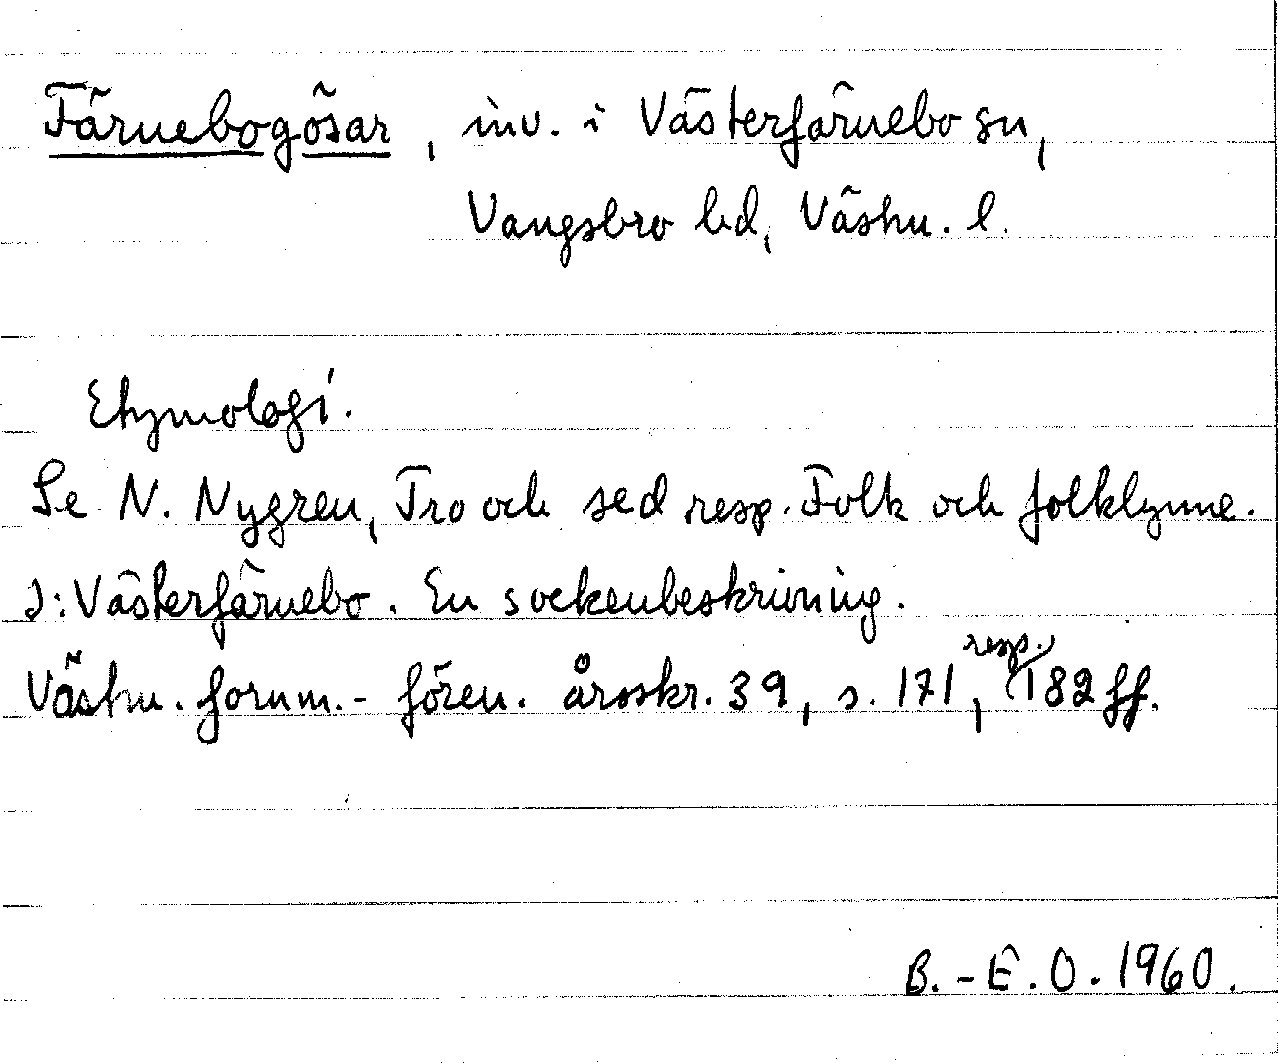 Färnebogösar, inv. i Västerfärnebo sn,
Vangsbro hd, Västm. l.
Etymologi.
Se N. Nygren, Tro och sed resp. Folk och folklynne.
I: Västerfärnebo. En sockenbeskrivning.
Västm. fornm.-fören. årsskr. 39, s. 171, resp. 182 ff.
B.-E. O. 1960.